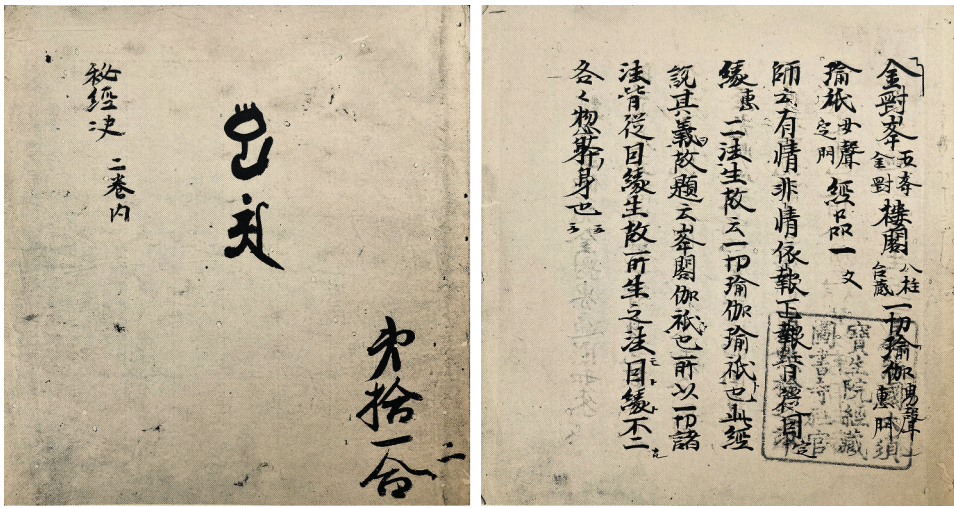 秘經决 二巻内
第拾一合
二
金剛峯 五峯 金剛 樓閣 八柱 台蔵 一切瑜伽 男聲 惠門
瑜祇 女聲 定門 經品一 文
師云有情非情依報正報皆從因 定
緣 惠 二法生故云一切瑜伽瑜祇也此經
説其義故題云峯閣伽祇也所以一切諸
法皆從因緣生故所生之法因緣不二
各々惣躰身也 云云
寶生院經藏
圖書寺社官